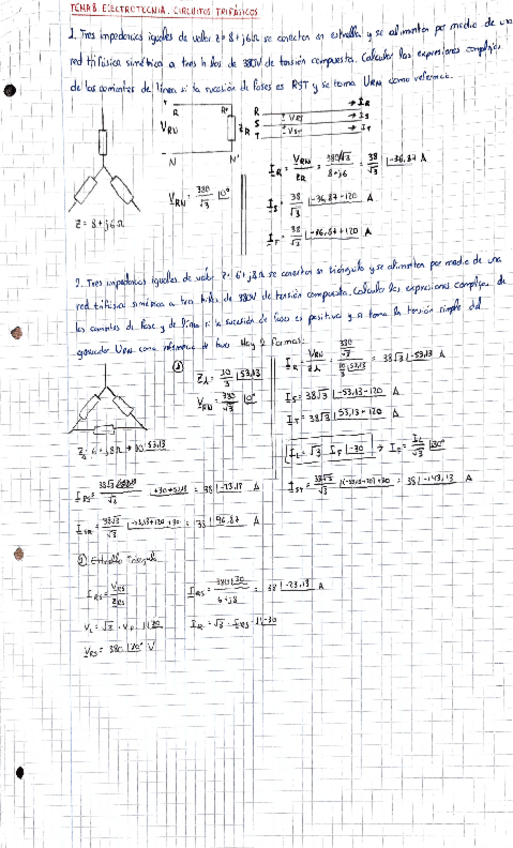 TEMA 8. ELECTROTECNIA. CIRCUITOS TRIFÁSICOS
1. Tres impedancias iguales de valor Z= 8+j6Ω se conectan en estrella y se alimentan por medio de una
red trifásica simétrica a tres hilos de 380V de tensión compuesta. Calcular las expresiones complejas
de las corrientes de línea si la sucesión de fases es RST y se toma URN como referencia.
R R' R → IR
VRN ZR S VRS → IS
T VST → IT
N N'
IR = VRN/ZR = 380/√3 / 8+j6 = 38/√3 |-36,87 A
VRN = 380/√3 |0°
IS = 38/√3 |-36,87-120 A
Z = 8+j6Ω
IT = 38/√3 |-36,87+120 A
2. Tres impedancias iguales de valor Z= 6+j8Ω se conectan en triángulo y se alimentan por medio de una
red trifásica simétrica a tres hilos de 380V de tensión compuesta. Calcular las expresiones complejas de
las corrientes de fase y de línea si la sucesión de fases es positiva y se toma la tensión simple del
generador URN como referencia de fases. Hay 2 formas:
① Zλ = 10/3 |53,13
IR = VRN/Zλ = 380/√3 / 10/3 |53,13 = 38√3 |-53,13 A
VRN = 380/√3 |0°
IS = 38√3 |-53,13-120 A
IT = 38√3 |-53,13+120 A
Z = 6+j8Ω → 10 |53,13
IL = √3 IF |-30 → IF = IL/√3 |30°
= 38 |-23,13 A
IST = 38√3/√3 |(-53,13-120)+30 = 38 |-143,13 A
ITR = 38√3/√3 |-53,13+120+30 = 38 |96,87 A
② Estrella Triángulo
IRS = VRS/ZRS
IRS = 380|30/6+j8 = 38 |-23,13 A
VL = √3 · VF · 1|30
IR = √3 · IRS · 1|-30
VRS = 380 |30° V